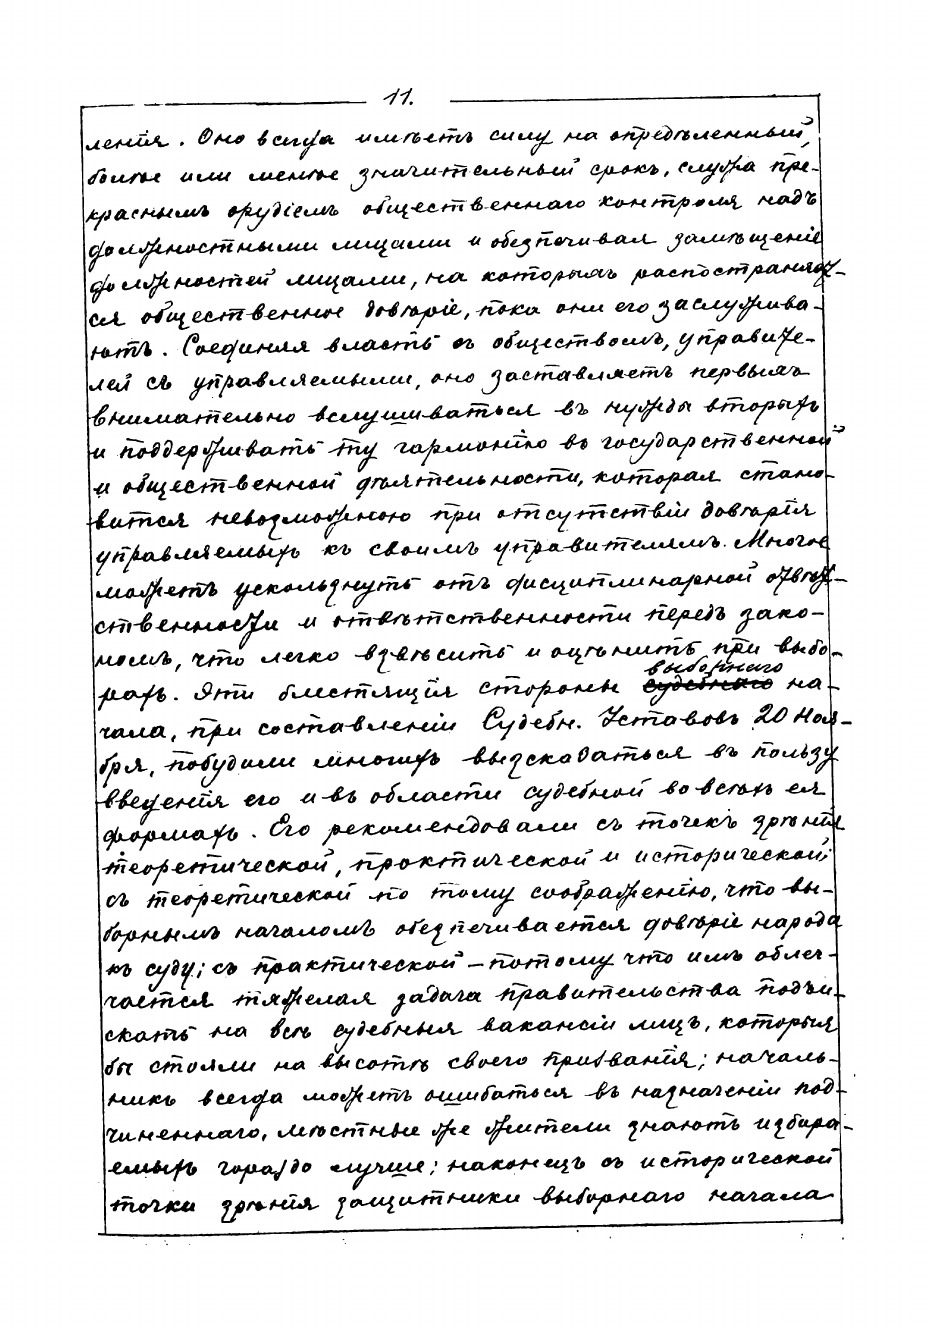 11.
ленія. Оно всегда имѣетъ силу на опредѣленный,
болѣе или менѣе значительный срокъ, служа пре-
краснымъ орудіемъ общественнаго контроля надъ
должностными лицами и обезпечивая замѣщеніе
должностей лицами, на которыхъ распостраняет-
ся общественное довѣріе, пока они его заслужива-
ютъ. Соединяя власть съ обществомъ, управите-
лей съ управляемыми, оно заставляетъ первыхъ
внимательно вслушиваться въ нужды вторыхъ
и поддерживать ту гармонію въ государственной
и общественной дѣятельности, которая стано-
вится невозможною при отсутствіи довѣрія
управляемыхъ къ своимъ управителямъ. Многое
можетъ ускользнуть отъ дисциплинарной отвѣт-
ственности и отвѣтственности передъ зако-
номъ, что легко взвѣсить и оцѣнить при выбо-
рахъ. Эти блестящія стороны судебнаго выборнаго на-
чала, при составленіи Судебн. Уставовъ 20 Ноя-
бря, побудили многихъ высказаться въ пользу
введенія его и въ области судебной во всѣхъ ея
формахъ. Его рекомендовали съ точекъ зрѣнія
теоретической, практической и исторической:
съ теоретической по тому соображенію, что вы-
борнымъ началомъ обезпечивается довѣріе народа
къ суду; съ практической – потому что имъ облег-
чается тяжелая задача правительства подъи-
скать на всѣ судебныя вакансіи лицъ, которыя
бы стояли на высотѣ своего призванія; началь-
никъ всегда можетъ ошибаться въ назначеніи под-
чиненнаго, мѣстные же жители знаютъ избира-
емыхъ гораздо лучше; наконецъ съ исторической
точки зрѣнія защитники выборнаго начала